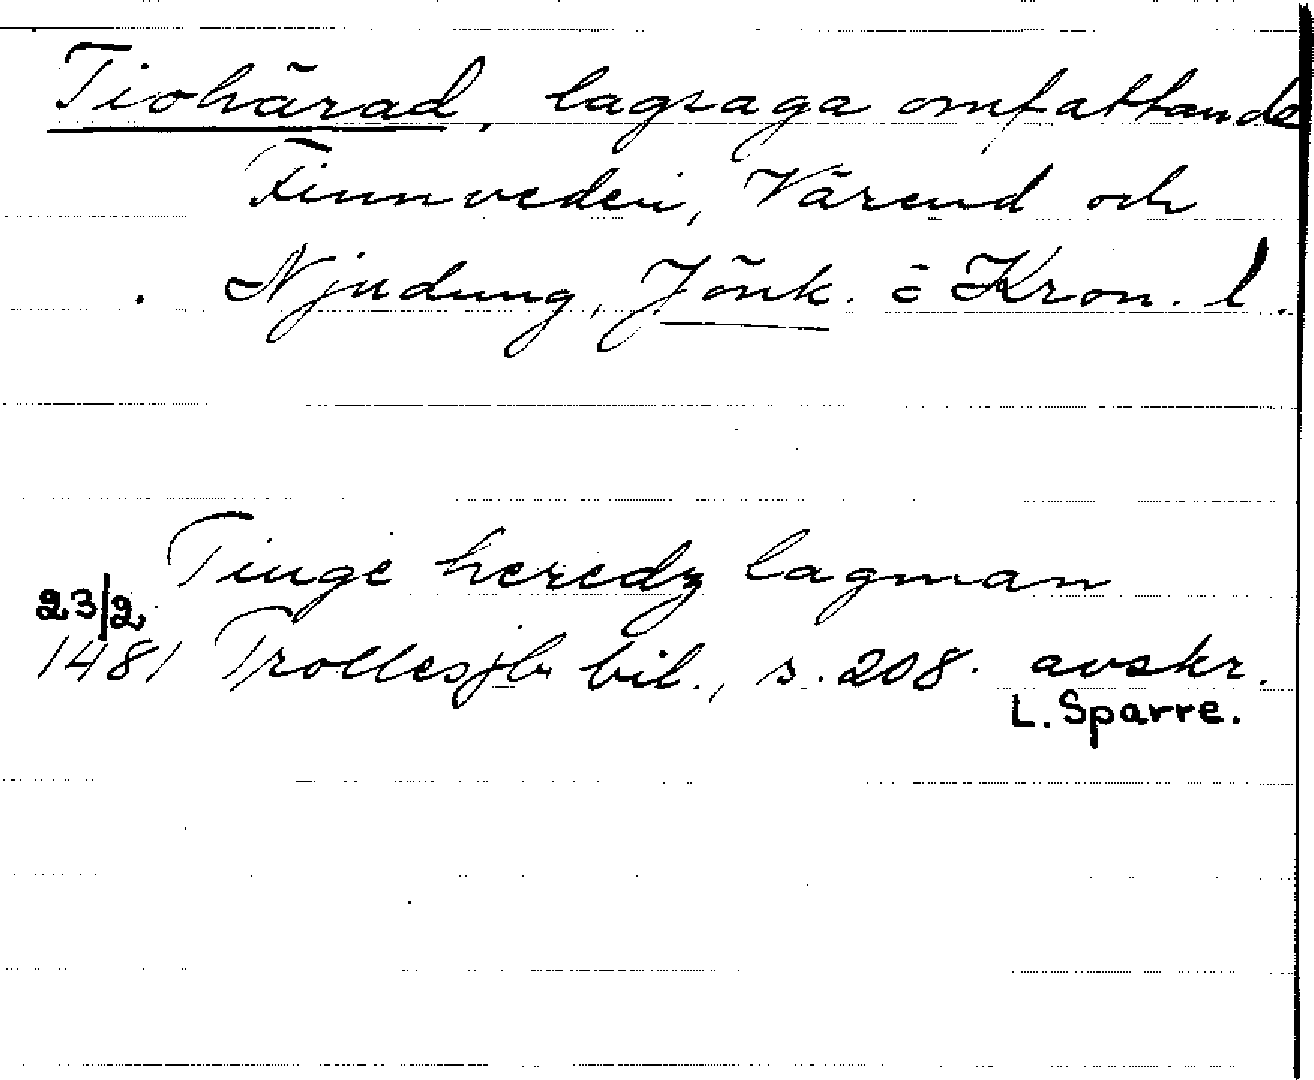 Tiohärad, lagsaga omfattande
Finnveden, Värend och
Njudung, Jönk. o Kron. l.
Tinge heredz lagman
23/2
1481 Trollesjb bil., s. 208. avskr.
L. Sparre.